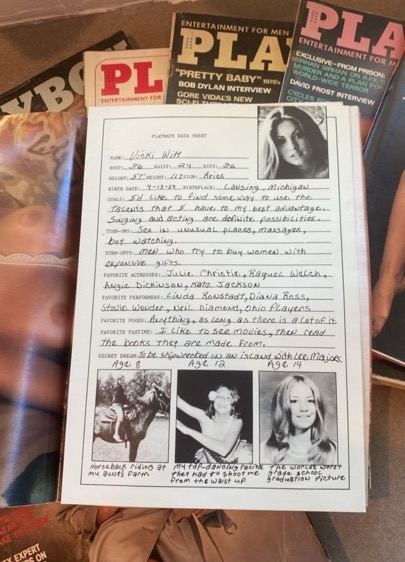 YBOY
PL
ENTERTAINMENT FOR
ENTERTAINMENT FOR MEN
PLA
"PRETTY BABY"
BOB DYLAN INTERVIEW
GORE VIDAL'S NEW
PLA
ENTERTAINMENT FOR MEN
EXCLUSIVE—FROM PRISON:
SIRHAN SIRHAN ON R.F.K.'S
MURDER AND A PLAN FOR
WORLD-WIDE TERROR
DAVID FROST INTERVIEW
PLAYMATE DATA SHEET
NAME: Vicki Witt
BUST: 36 WAIST: 24 HIPS: 36
HEIGHT: 5'7" WEIGHT: 113 SIGN: Aries
BIRTH DATE: BIRTHPLACE: Lansing, Michigan
GOALS: I'd like to find some way to use the
talents that I have to my best advantage.
Singing and acting are definite possibilities.
TURN-ONS: Sex in unusual places, massages,
boy watching.
TURN-OFFS: Men who try to buy women with
expensive gifts.
FAVORITE ACTRESSES: Julie Christie, Raquel Welch,
Angie Dickinson, Kate Jackson
FAVORITE PERFORMERS: Linda Ronstadt, Diana Ross,
Stevie Wonder, Neil Diamond, Ohio Players
FAVORITE FOODS: Anything, as long as there is a lot of it.
FAVORITE PASTIME: I like to see movies, then read
the books they are made from.
SECRET DREAM: To be shipwrecked on an island with Lee Majors.
Age 8
Age 12
Age 14
Horseback riding at
my aunt's farm
My tap-dancing recital
they had to shoot me
from the waist up
The world's worst
grade school
graduation picture
EXPERT